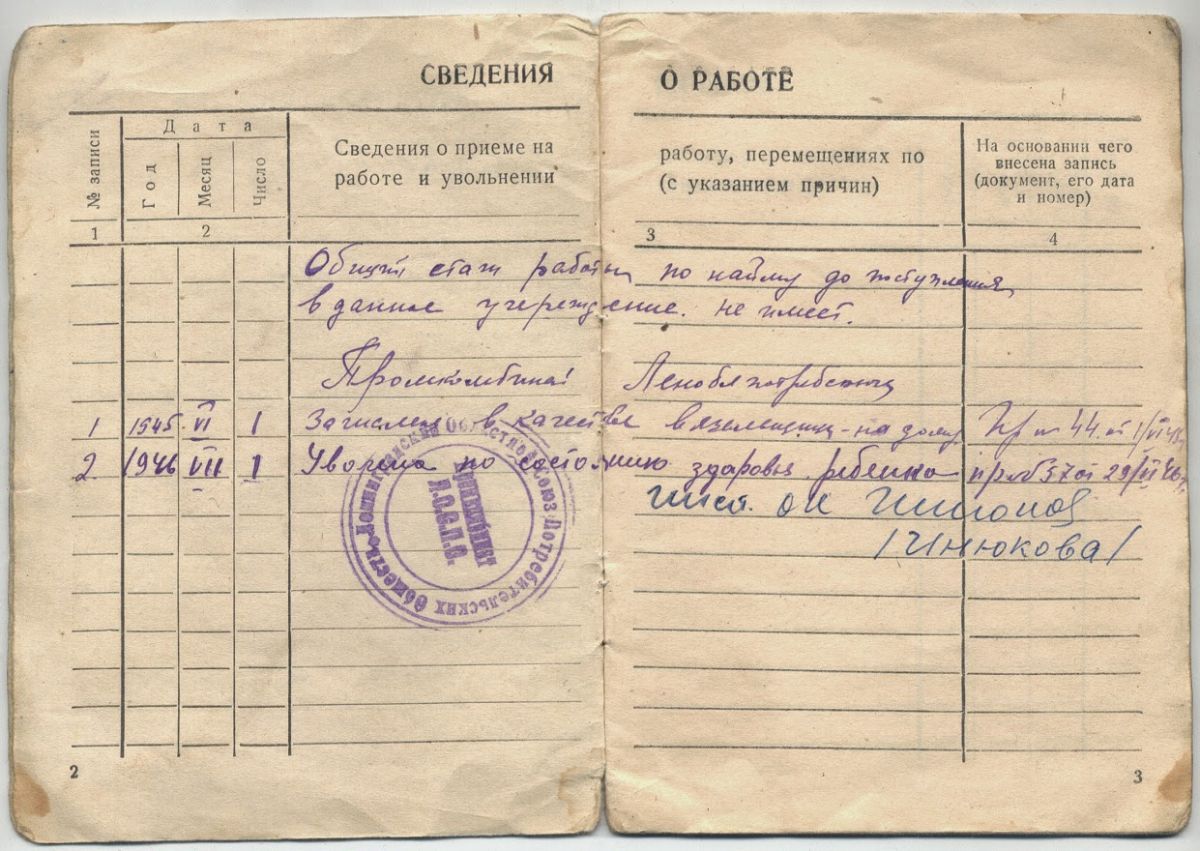 СВЕДЕНИЯ О РАБОТЕ
№ записи
Дата
Год
Месяц
Число
Сведения о приеме на работу, перемещениях по
работе и увольнении (с указанием причин)
На основании чего
внесена запись
(документ, его дата
и номер)
1 2 3 4
Общий стаж работы по найму до поступления
в данное учреждение. не имеет.
Промкомбинат Леноблпотребсоюза
1 1945 VI 1 Зачислена в качестве вязальщицы - на дому Пр № 44 от 1/VI 45
2 1946 VII 1 Уволена по состоянию здоровья ребенка пр № 57 от 29/VI 46
ОК
/Инюкова/
Ленинградский Областной Союз Потребительских Обществ
Промкомбинат
Л.О.С.П.О.
2
3